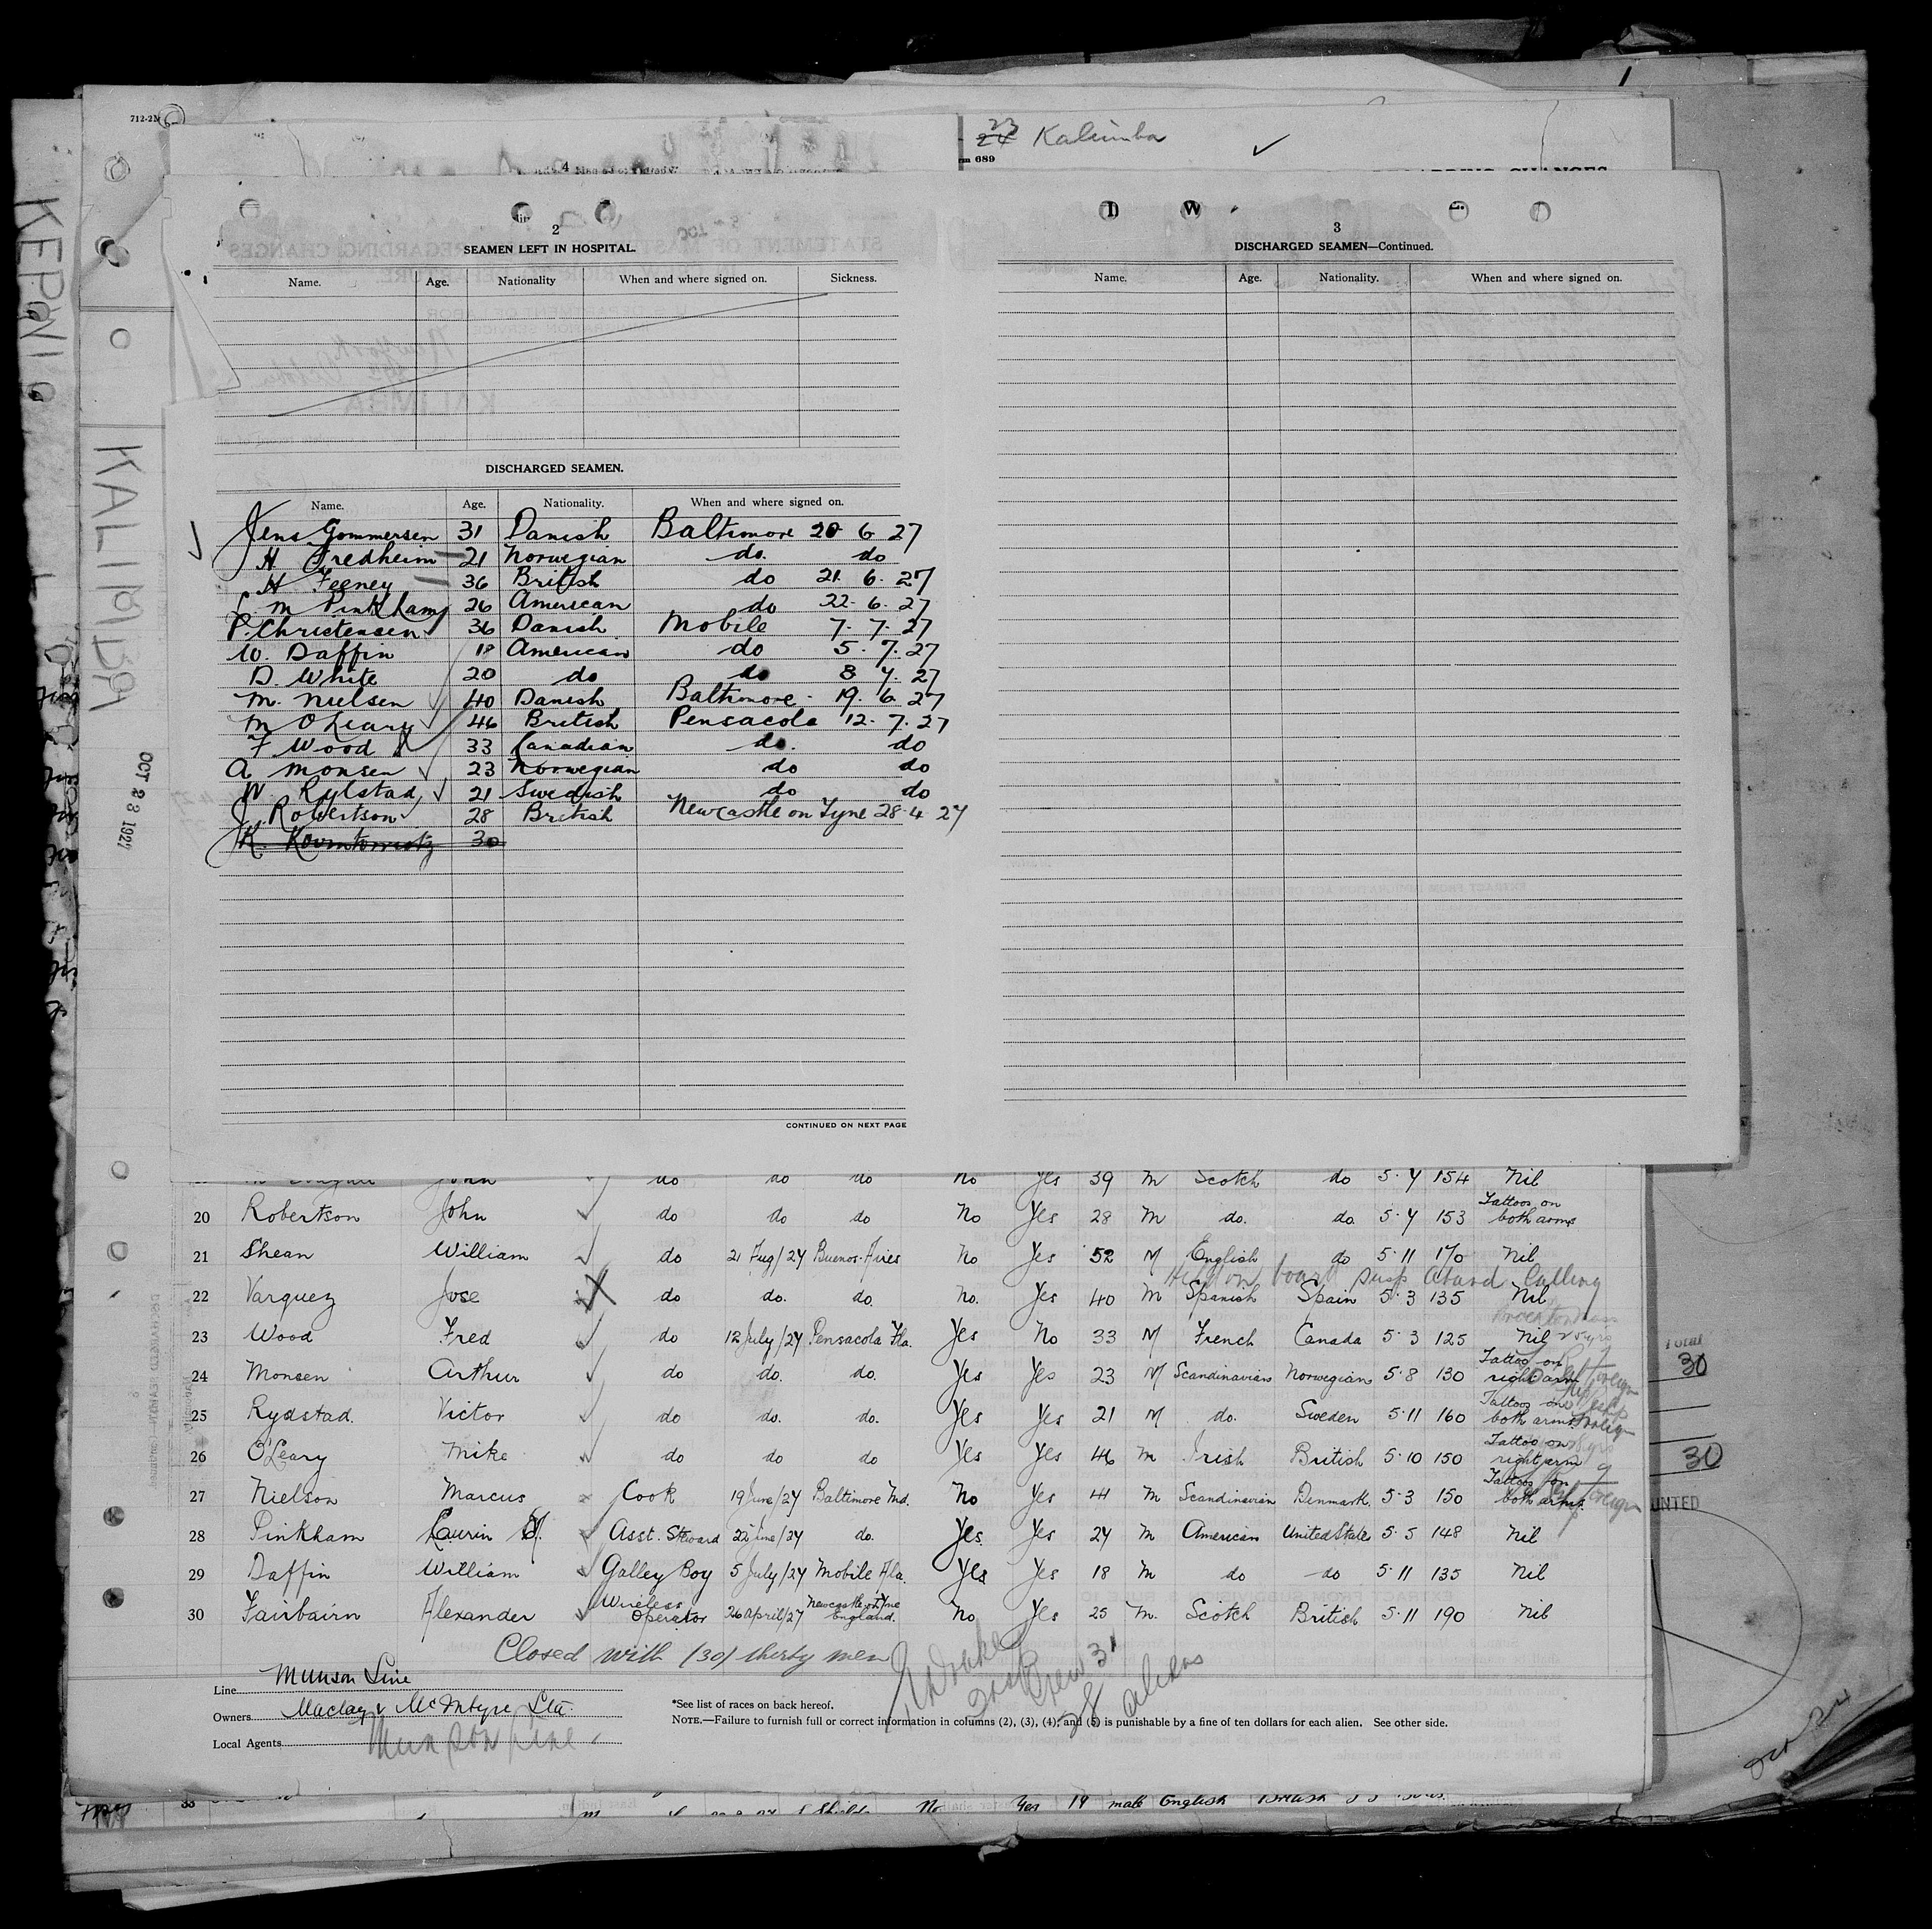 712-2
23
24 Kalimba
689
2
SEAMEN LEFT IN HOSPITAL.
Name. Age. Nationality When and where signed on. Sickness.
DISCHARGED SEAMEN.
Name. Age. Nationality. When and where signed on.
Jens Gommersen 31 Danish Baltimore 20 6 27
H Fredheim 21 Norwegian do. do
H Feeney 36 British do 21. 6. 27
L. M Pinkham 26 American do 22. 6. 27
P. Christensen 36 Danish Mobile 7. 7. 27
W. Daffin 18 American do 5. 7. 27
D. White 20 do do 8 7. 27
M. Nielsen 40 Danish Baltimore 19. 6. 27
M O'Leary 46 British Pensacola 12. 7. 27
F Wood 33 Canadian do. do
A Monsen 23 Norwegian do do
Rylstad 21 Swedish do do
J. Robertson 28 British Newcastle on Tyne 28.4 27
K. 30
CONTINUED ON NEXT PAGE
3
DISCHARGED SEAMEN—Continued.
Name. Age. Nationality. When and where signed on.
KALIMBA
OCT 28 1927
John do do do No Yes 39 M Scotch do 5.7 154 Nil
20 Robertson John do do do No Yes 28 M do. do. 5.7 153 Tattoos on both arms
21 Shean William do 21 Aug/27 Buenos-Aires No Yes 52 M English do 5.11 170 Nil
22 Varquez Jose do do. do. No. Yes 40 M Spanish Spain 5.3 135 Nil
23 Wood Fred do 12 July/27 Pensacola Fla. Yes No 33 M French Canada 5.3 125 Nil
24 Monsen Arthur do do. do. Yes Yes 23 M Scandinavian Norwegian 5.8 130 Tattoo on right arm
25 Rydstad. Victor do do. do. Yes Yes 21 M do. Sweden 5.11 160 Tattoos on both arms
26 O'Leary Mike do do do Yes Yes 46 M Irish British 5.10 150 Tattoo on right arm
27 Nielson Marcus Cook 19 June/27 Baltimore Md. No Yes 41 M Scandinavian Denmark. 5.3 150 Tattoos on both arms.
28 Pinkham Laurin M. Asst. Steward 22 June/27 do. Yes. Yes 27 M American United States 5.5 148 Nil
29 Daffin William Galley Boy 5 July/27 Mobile Ala. Yes Yes 18 M do do 5.11 135 Nil
30 Fairbairn Alexander Wireless Operator 26 April/27 Newcastle on Tyne England. No Yes 25 M. Scotch British 5.11 190 Nil
Closed with (30) thirty men
Crew 31
28 aliens
Line Munson Line
Owners Maclay & McIntyre Ltd.
Local Agents Munson Line
*See list of races on back hereof.
NOTE.—Failure to furnish full or correct information in columns (2), (3), (4), and (5) is punishable by a fine of ten dollars for each alien. See other side.
Total
30
30
UNTED
33 Shields No Yes 19 male English British